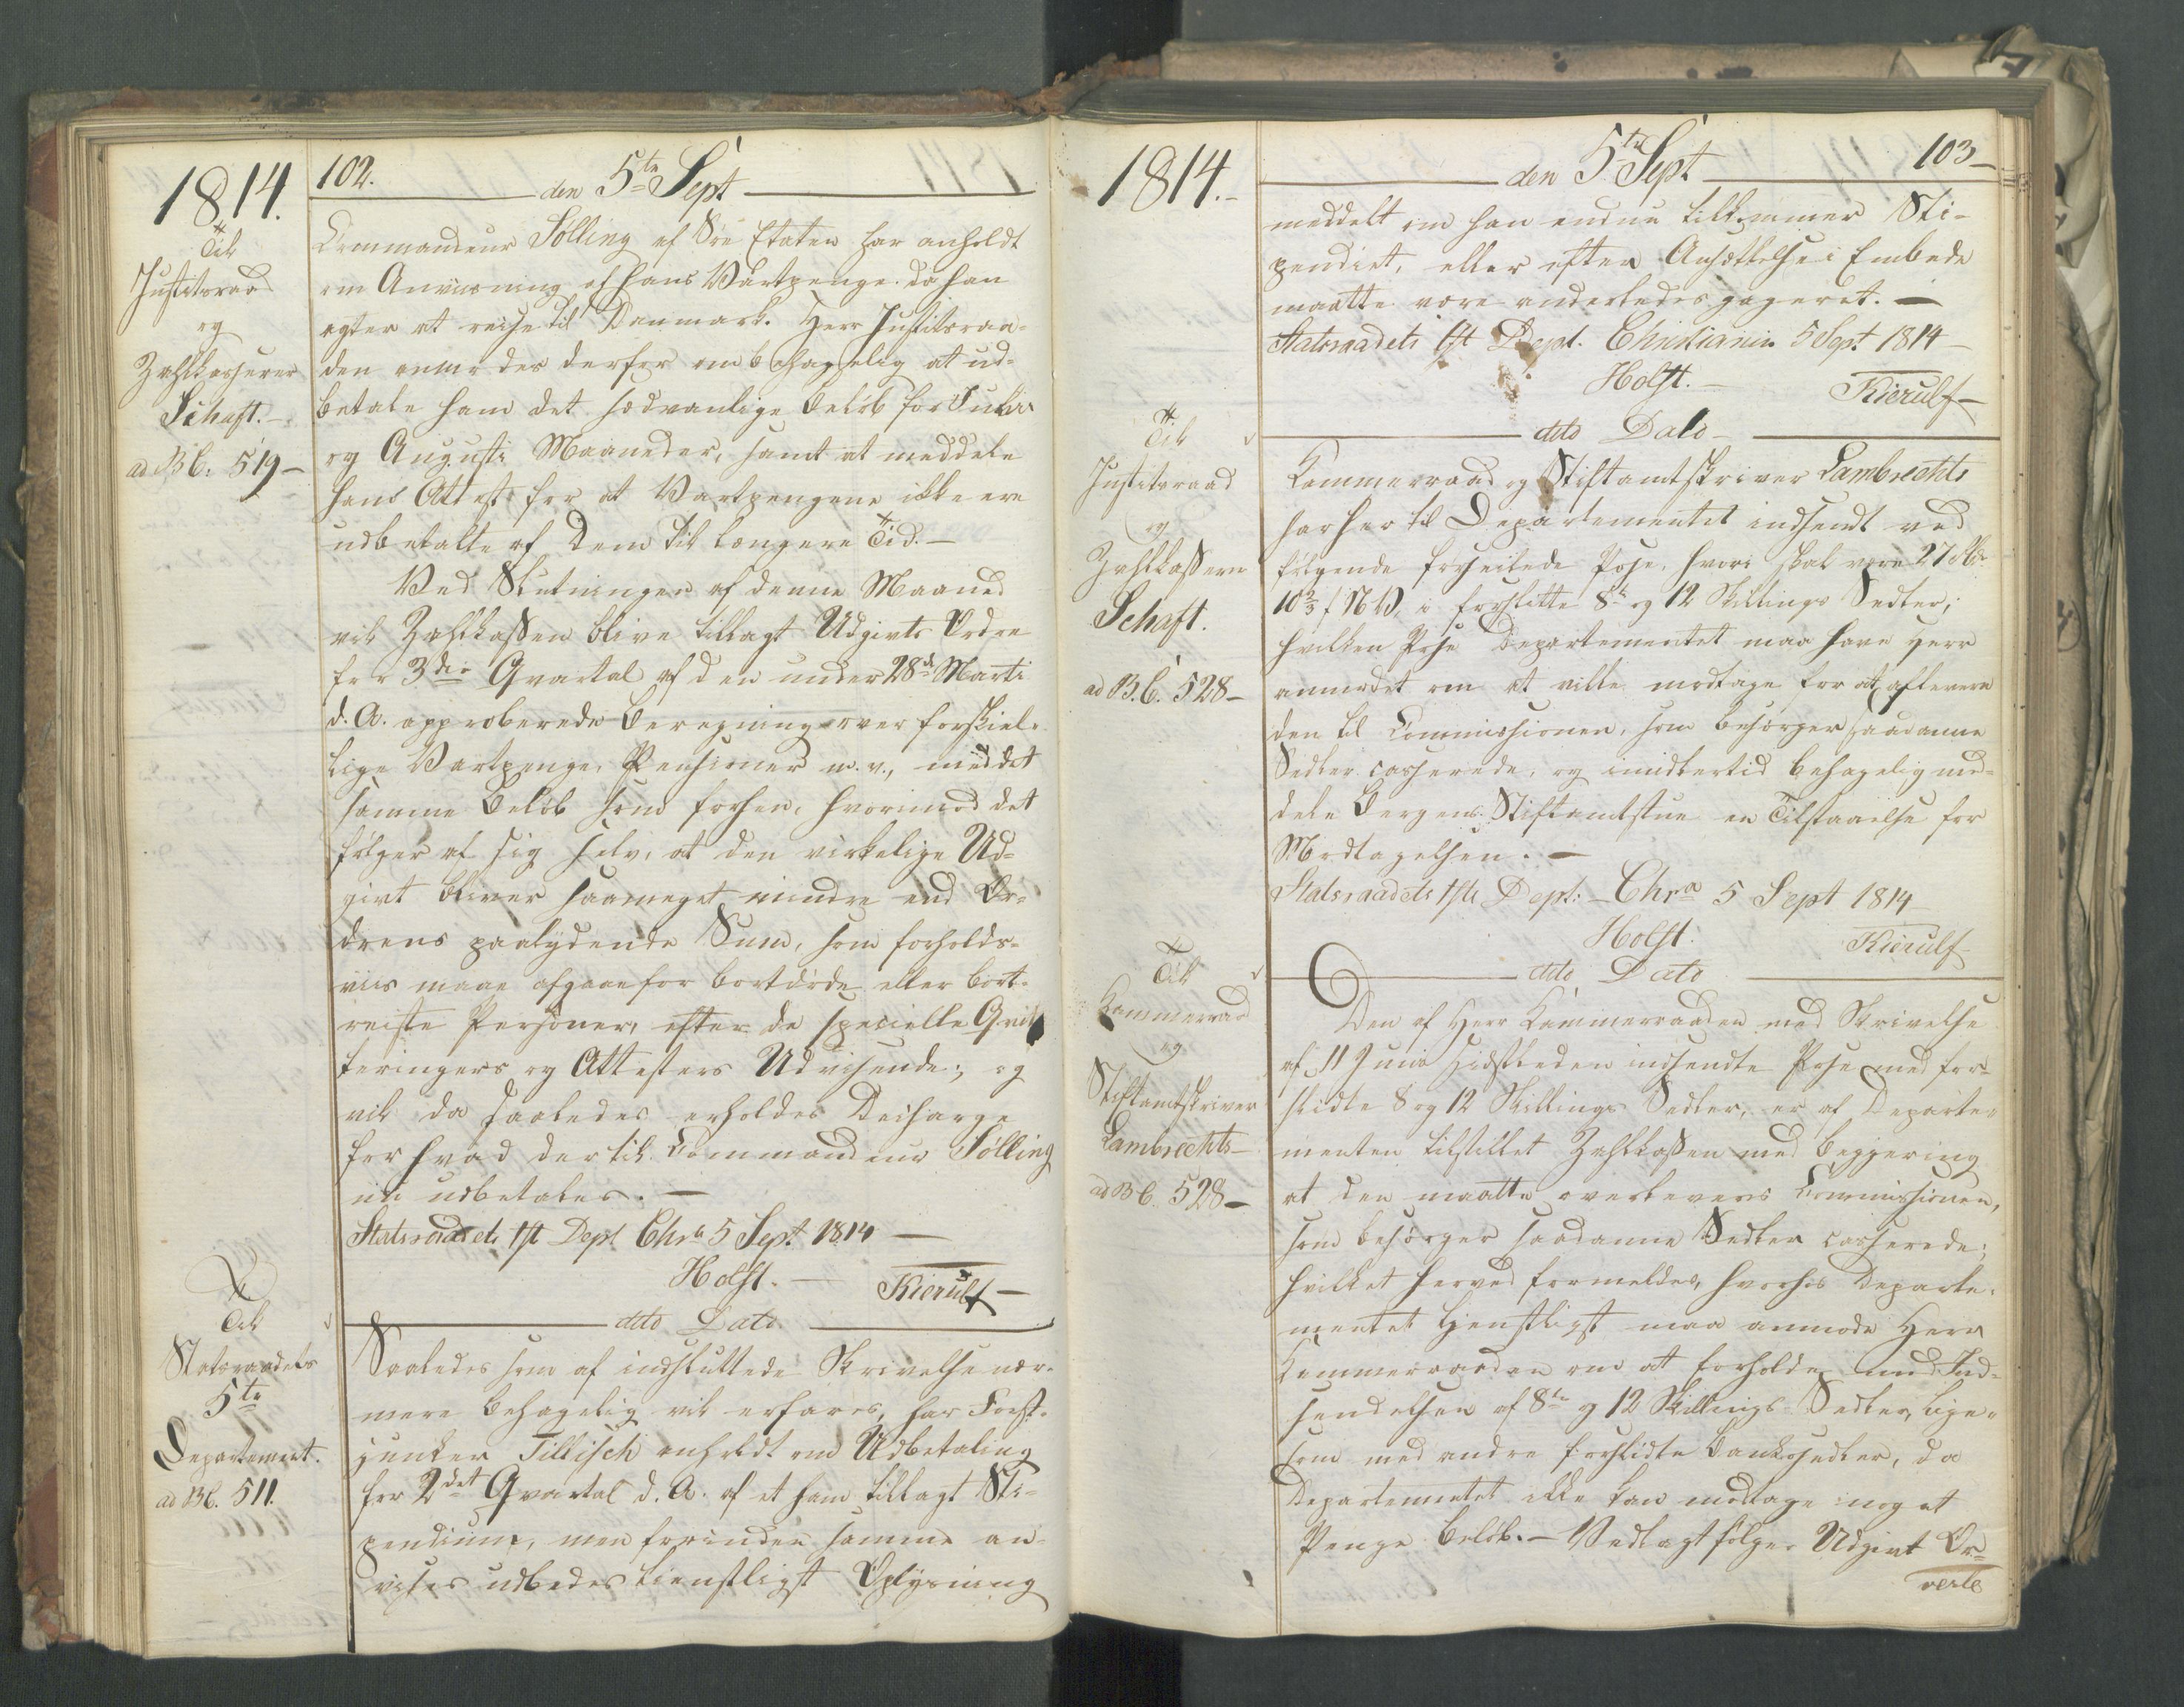 1814.
102.
den 5te Sept
Til
Justitsraad
og
Zahlkasserer
Schaft.
ad B C. 519
Commandeur Sølling af Søe Etaten har anholdt
om Anviisning af hans Vartpenge da han
agter at reise til Danmark. Herr Justitsraa-
den anmodes derfor om behagelig at ud-
betale ham det sædvanlige Beløb for Julii
og Augusti Maaneder, samt at meddele
hans Attest for at Vartpengene ikke ere
udbetalte af Dem til længere Tid. —
Ved Slutningen af denne Maaned
vil Zahlkassen blive tillagt Udgivts Ordre
for 3die Qvartal af den under 28de Marti
d. A. approberede Beregning over forskiel-
lige Vartpenge, Pensioner m. v., med det
samme Beløb som forhen, hvorimod det
følger af sig selv, at den virkelige Ud-
givt bliver saameget mindre end Or-
drens paalydende Sum, som forholds-
viis maae afgaae for bortdøde eller bort-
reiste Personer, efter de specielle Qvit-
teringers og Attesters Udvisende; og
vil da saaledes erholdes Decharge
for hvad der til Commandeur Sølling
nu udbetales. —
Statsraadets 1ste Dept Chra 5 Sept 1814 —
Holst. — Kierulf —
dito Dato
Til
Statsraadets
5te
Departement.
ad B C. 511.
Saaledes som af indsluttede Skrivelse nær-
mere behagelig vil erfares, har Forst-
junker Tillisch anholdt om Udbetaling
for 2det Qvartal d. A. af et ham tillagt Sti-
pendium, men forinden samme an-
vises udbedes tienstligst Oplysning
1814. -
den 5te Sept
103 -
meddelt om han endnu tilkommer Sti-
pendiet, eller efter Ansættelse i Embede
maatte være anderledes gageret. —
Statsraadets 1st Dept. Christiania 5 Sept 1814 —
Holst. — Kierulf —
dito Dato —
Til
Justitsraad
og
Zahlkasserer
Schaft.
ad B. C. 528 -
Kammerraad og Stiftamtskriver Lambrechts
har her til Departementet indsendt ved
følgende forseilede Pose, hvori skal være 27 Rbd.
10 2/3 s N V. i forslitte 8te og 12 Skillings Sedler;
hvilken Pose Departementet maa have Herr
anmodet om at ville modtage for at aflevere
den til Commissionen, som besørger saadanne
Sedler casserede, og imidlertid behagelig med-
dele Bergens Stiftamtstue en Tilstaaelse for
Modtagelsen. —
Statsraadets 1ste Dept: — Chra 5 Sept 1814
Holst. Kierulf
dito Dato
Til
Kammerraad
og
Stiftamtskriver
Lambrechts —
ad B C. 528 -
Den af Herr Kammerraaden med Skrivelse
af 11 Junii sidstleden indsendte Pose med for-
slidte 8 og 12 Skillings Sedler, er af Departe-
menten tilstillet Zahlkassen med Begjering
at den maatte overleveres Commissionen,
som besørger saadanne Sedler casserede;
hvilket herved formeldes, hvorhos Departe-
mentet tjenstligst maa anmode Herr
Kammerraaden om at forholde med Ind-
sendelsen af 8te og 12 Skillings Sedler, lige-
som med andre forslidte Bankosedler, da
Departementet ikke kan modtage noget
Penge Beløb. — Vedlagt følger Udgivt Or-
verte